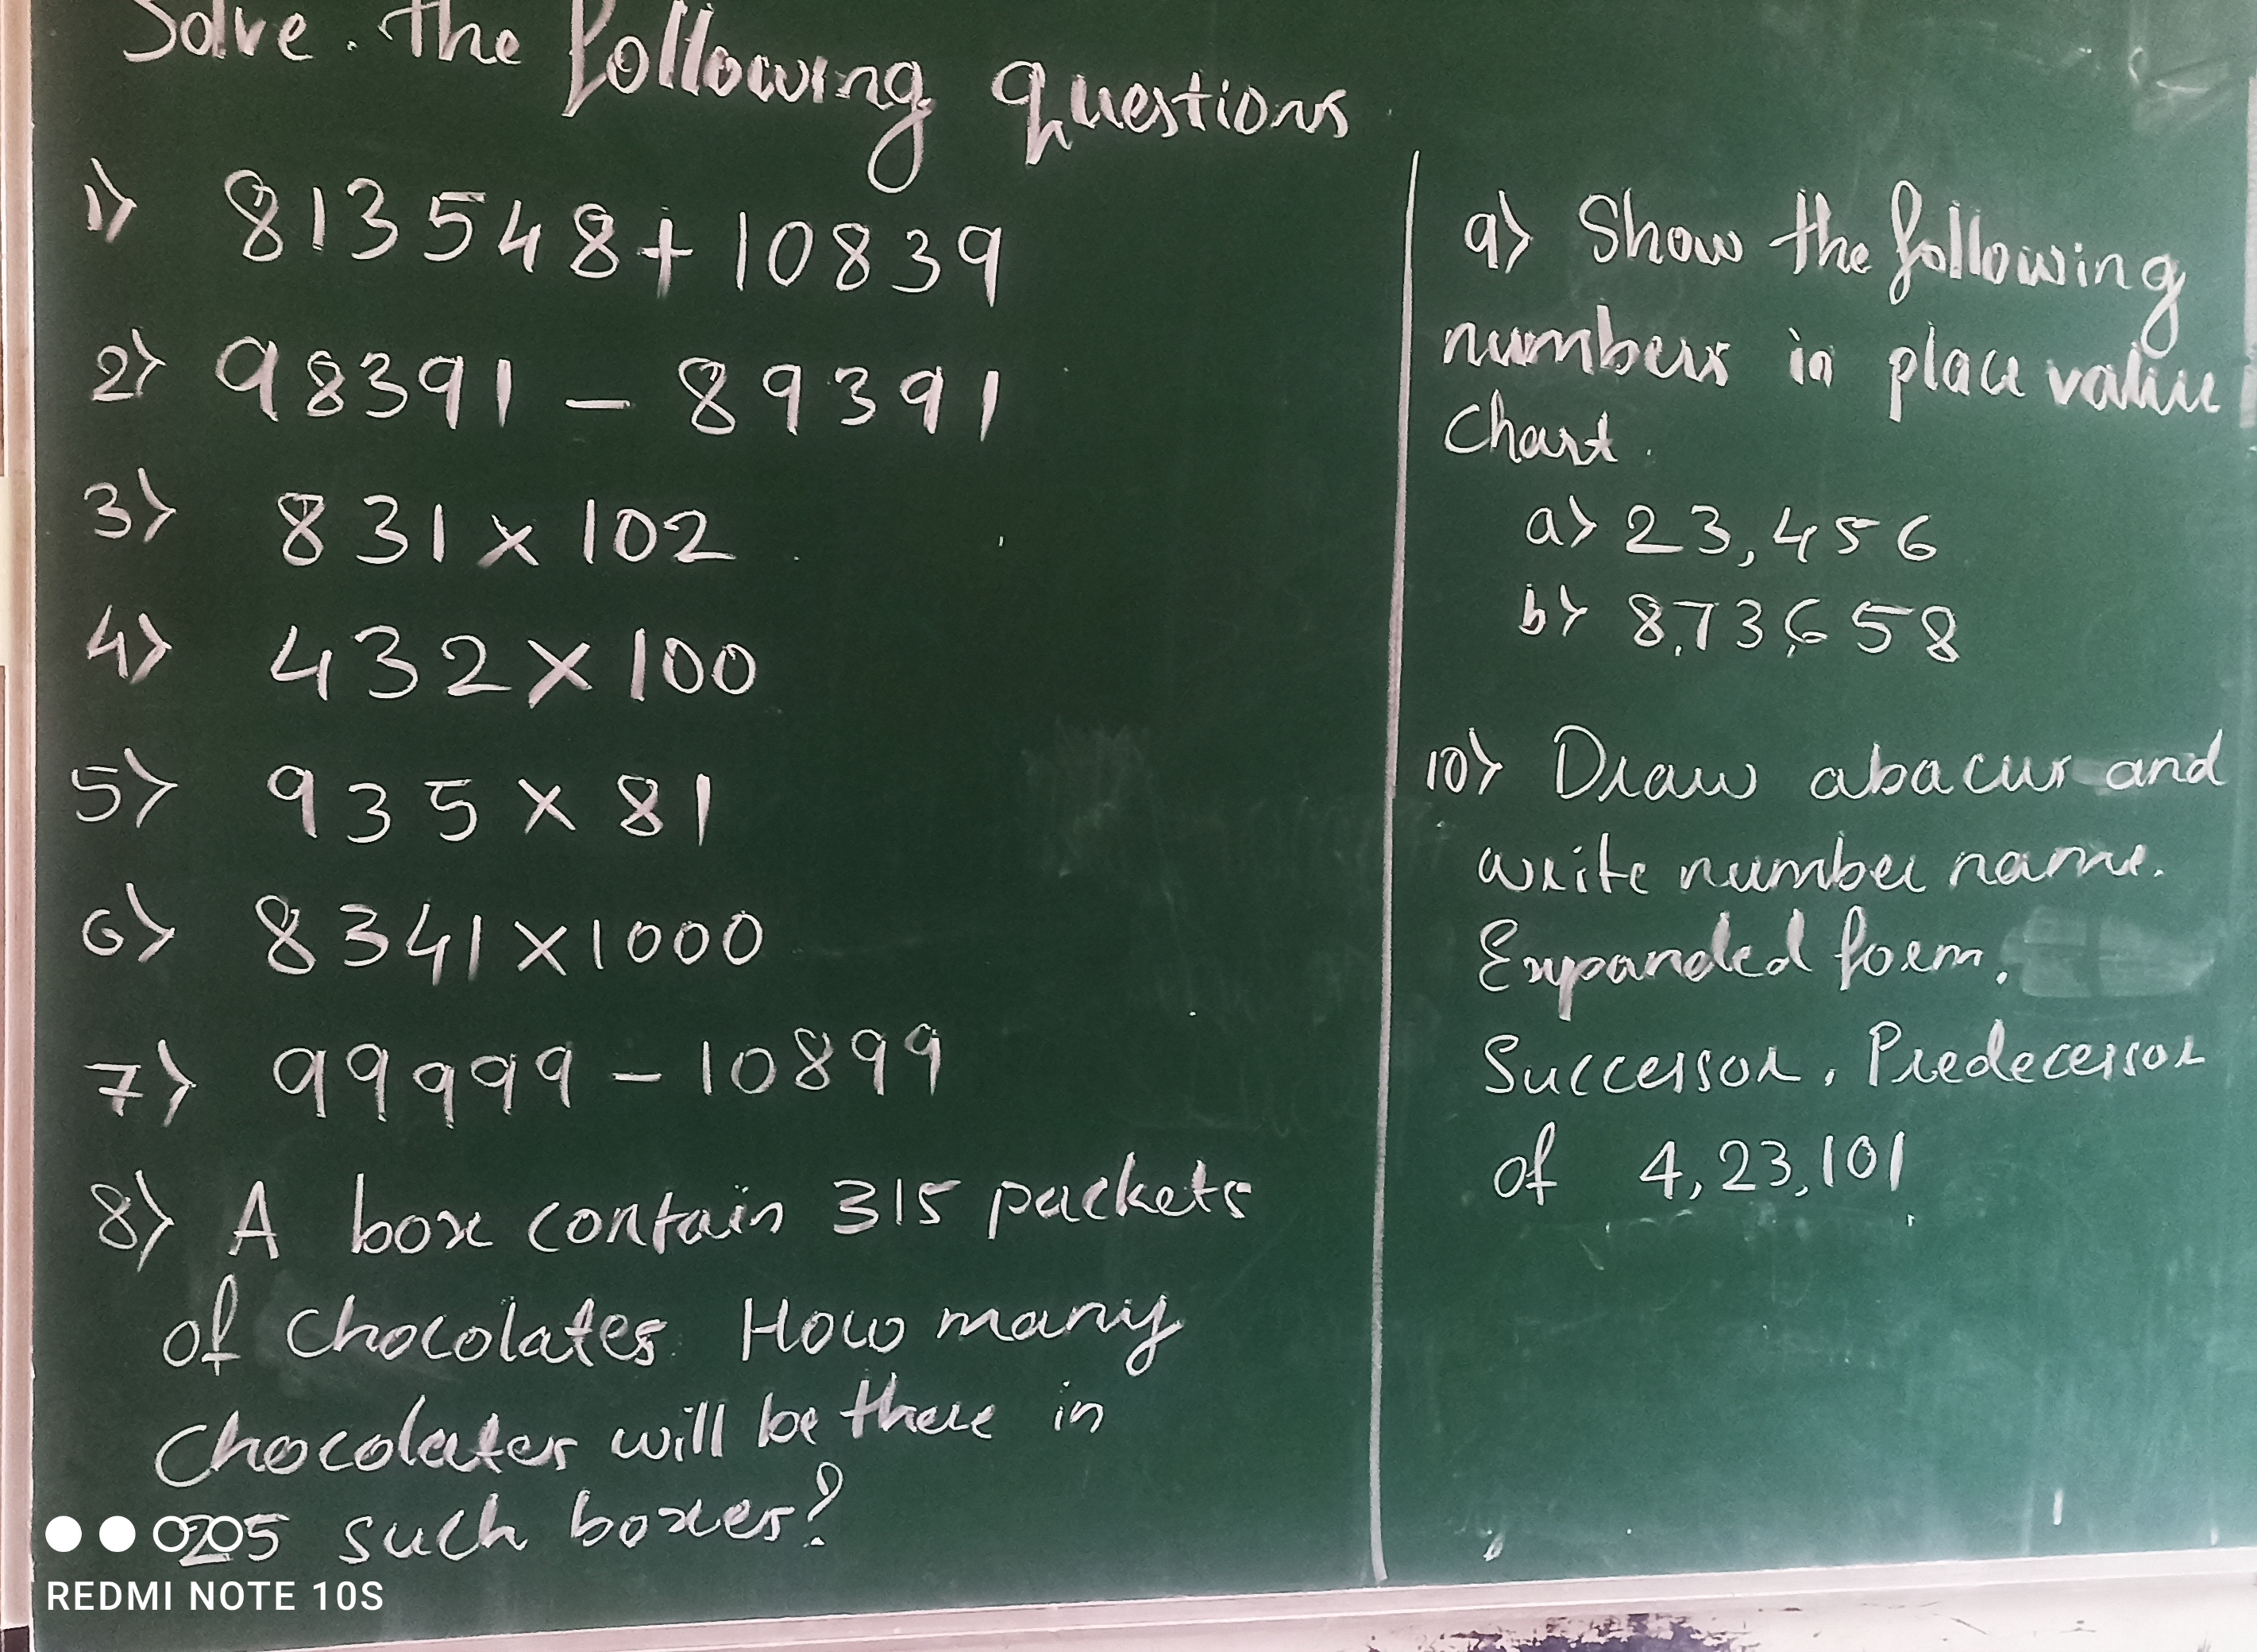 Solve the following questions
1) 813548 + 10839
2) 98391 - 89391
3) 831 x 102
4) 432 x 100
5) 935 x 81
6) 8341 x 1000
7) 99999 - 10899
8) A box contain 315 packets
of chocolates. How many
chocolates will be there in
25 such boxes?
9) Show the following
numbers in place value
chart.
a) 23,456
b) 8,73,658
10) Draw abacus and
write number name.
Expanded form,
Successor, Predecessor
of 4,23,101
REDMI NOTE 10S